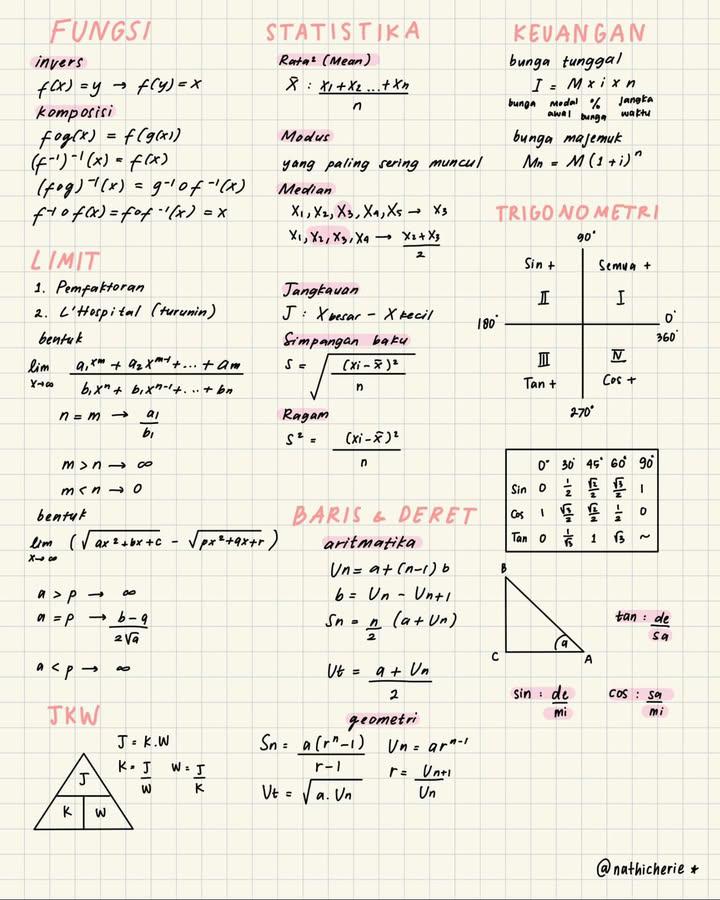 FUNGSI
invers
f(x) = y → f(y) = x
komposisi
fog(x) = f(g(x))
(f⁻¹)⁻¹(x) = f(x)
(fog)⁻¹(x) = g⁻¹ o f⁻¹(x)
f⁻¹ o f(x) = f o f⁻¹(x) = x
LIMIT
1. Pemfaktoran
2. L'Hospital (turunin)
bentuk
lim x→∞ a₁xᵐ + a₂xᵐ⁻¹ + ... + am / b₁xⁿ + b₁xⁿ⁻¹ + ... + bn
n = m → a₁/b₁
m > n → ∞
m < n → 0
bentuk
lim x→∞ (√ax²+bx+c - √px²+qx+r)
a > p → ∞
a = p → b-q / 2√a
a < p → ∞
JKW
J = K.W
K = J/W W = J/K
J
K W
STATISTIKA
Rata² (Mean)
x̄ : x₁ + x₂ ... + xn / n
Modus
yang paling sering muncul
Median
x₁, x₂, x₃, x₄, x₅ → x₃
x₁, x₂, x₃, x₄ → x₂ + x₃ / 2
Jangkauan
J : X besar - X kecil
Simpangan baku
S = √(xi - x̄)² / n
Ragam
S² = (xi - x̄)² / n
BARIS & DERET
aritmatika
Un = a + (n-1) b
b = Un - Un+1
Sn = n/2 (a + Un)
Ut = a + Un / 2
geometri
Sn = a(rⁿ-1) / r-1 Un = arⁿ⁻¹
Ut = √a. Un r = Un+1 / Un
KEUANGAN
bunga tunggal
I = M x i x n
bunga modal awal % bunga jangka waktu
bunga majemuk
Mn = M (1 + i)ⁿ
TRIGONOMETRI
90°
Sin + Semua +
II I
180° 0°
360°
III IV
Tan + Cos +
270°
0° 30° 45° 60° 90°
Sin 0 1/2 √2/2 √3/2 1
Cos 1 √3/2 √2/2 1/2 0
Tan 0 1/√3 1 √3 ~
B
C a A
tan : de/sa
sin : de/mi cos : sa/mi
@nathicherie *